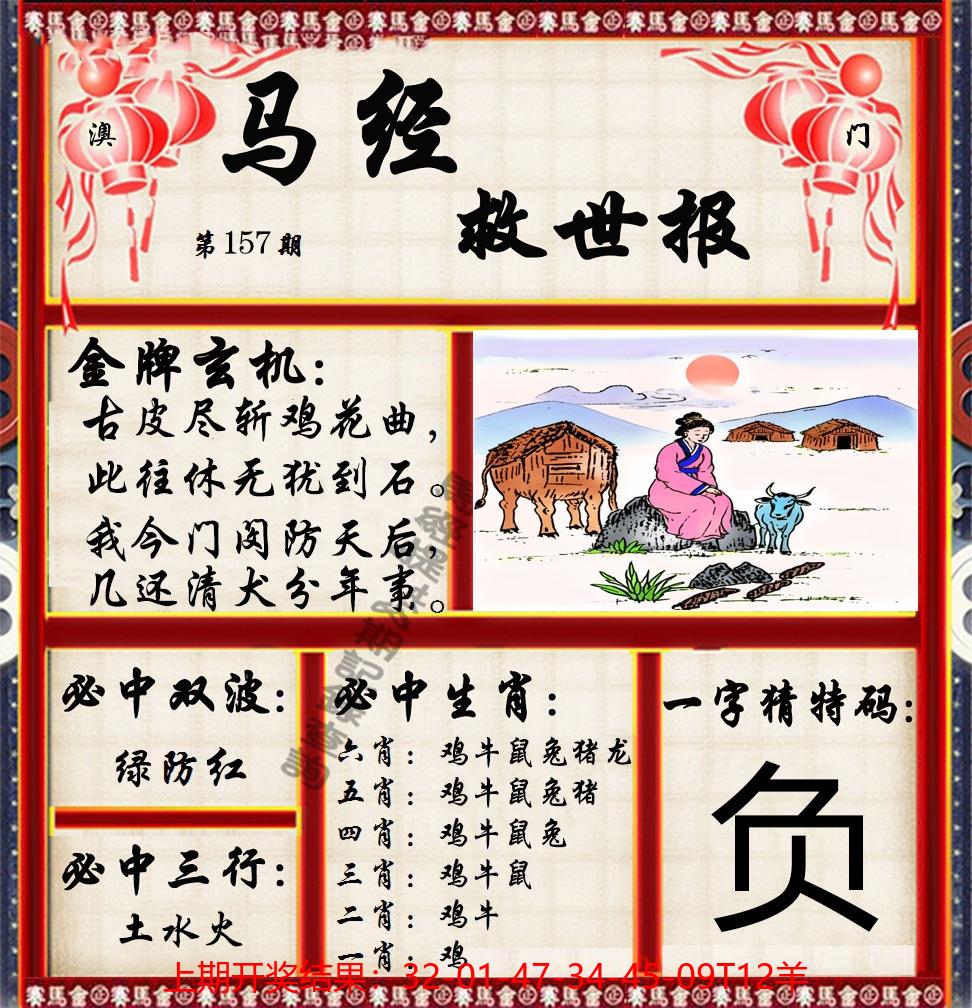 澳
门
马经
救世报
第157期
金牌玄机：
古皮尽斩鸡花曲，
此往休无犹到石。
我今门阅防天后，
几还清犬分年事。
必中双波：
绿防红
必中三行：
土水火
必中生肖：
六肖：鸡牛鼠兔猪龙
五肖：鸡牛鼠兔猪
四肖：鸡牛鼠兔
三肖：鸡牛鼠
二肖：鸡牛
一肖：鸡
一字猜特码：
负
上期开奖结果：32-01-47-34-45-09T12羊